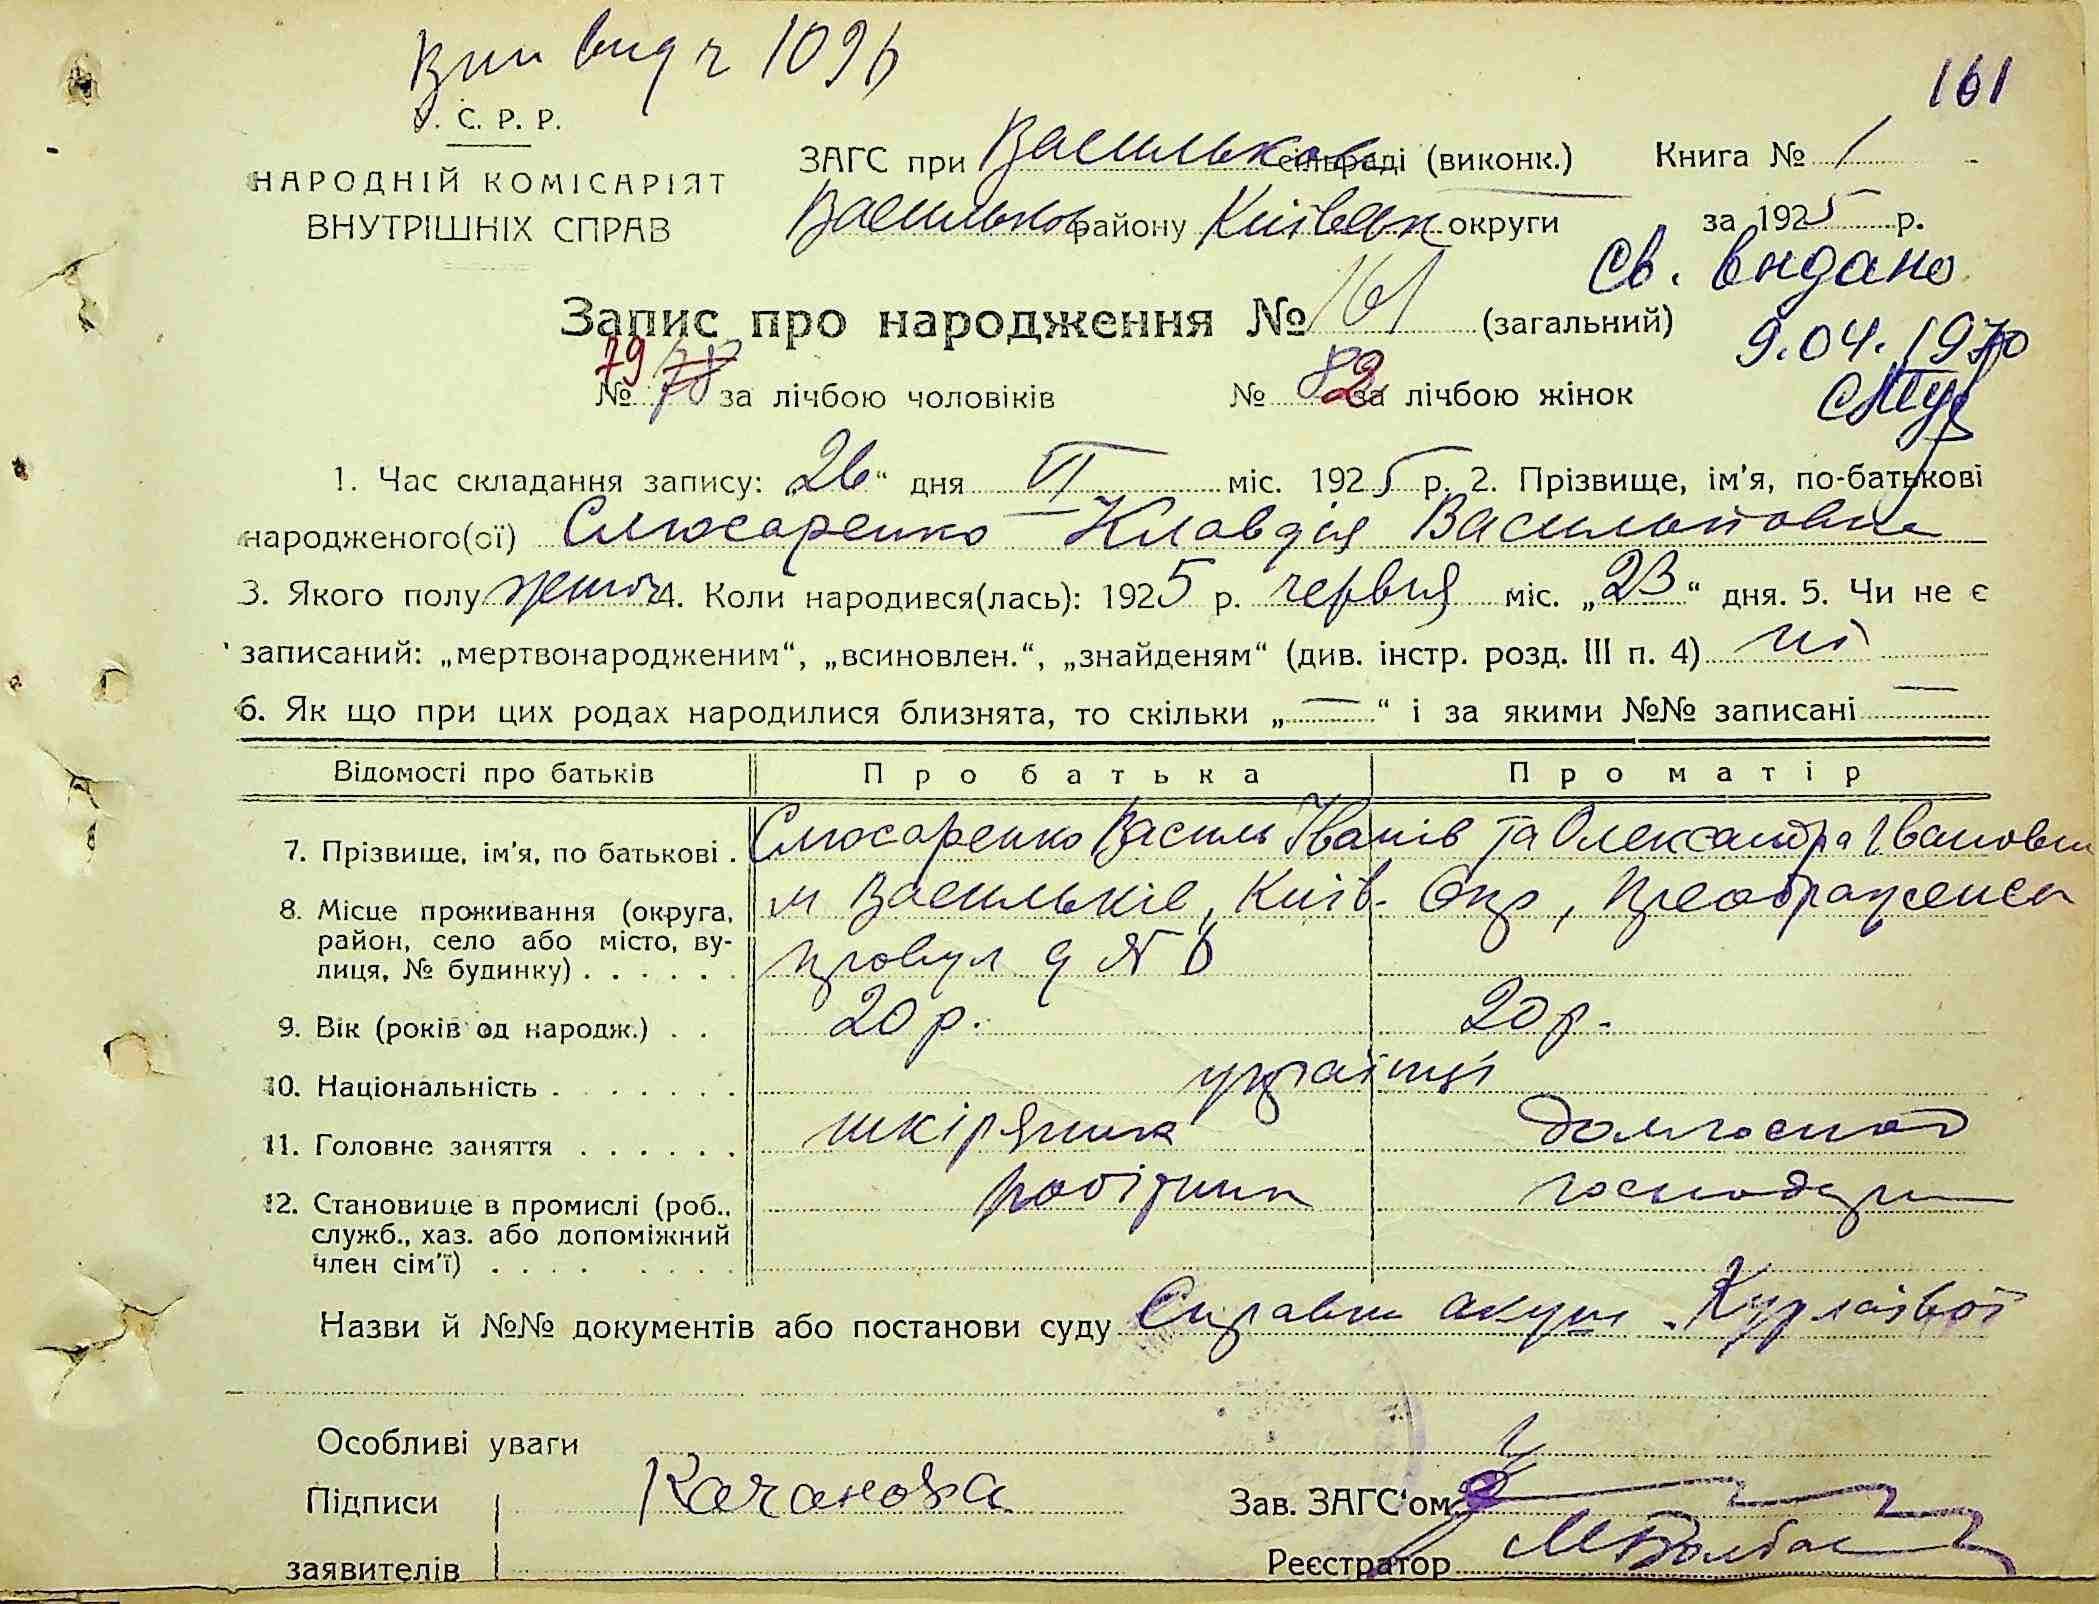 Вип вид ч 109
161
У. С. Р. Р.
НАРОДНІЙ КОМІСАРІЯТ
ВНУТРІШНІХ СПРАВ
ЗАГС при Васильков сільраді (виконк.) Книга № 1
Васильков району Київськ округи за 1925 р.
Св. видано
9.04.1970
Запис про народження № 161 (загальний)
№ 79 78 за лічбою чоловіків № 82 за лічбою жінок
1. Час складання запису: „26“ дня VI міс. 1925 р. 2. Прізвище, ім'я, по-батькові
народженого(ої) Слюсаренко Клавдія Васильовна
3. Якого полу жіноч 4. Коли народився(лась): 1925 р. червня міс. „23“ дня. 5. Чи не є
записаний: „мертвонародженим“, „всиновлен.“, „знайденям“ (див. інстр. розд. III п. 4) ні
6. Як що при цих родах народилися близнята, то скільки „—“ і за якими №№ записані —
Відомості про батьків Про батька Про матір
7. Прізвище, ім'я, по батькові . Слюсаренко Василь Іванів та Олександра Івановна
8. Місце проживання (округа, м Васильків, Київ. Окр, Преображенск
район, село або місто, ву-
лиця, № будинку) . . . . . . провул д №
9. Вік (років од народж.) . . 20 р. 20 р.
10. Національність . . . . . . . українці
11. Головне заняття . . . . . . шкіряник домгоспод
12. Становище в промислі (роб., робітник господарк
служб., хаз. або допоміжний
член сім'ї) . . . . . . . .
Назви й №№ документів або постанови суду Справка акуш.
Особливі уваги
Підписи Качанова Зав. ЗАГС'ом
заявителів Реєстратор